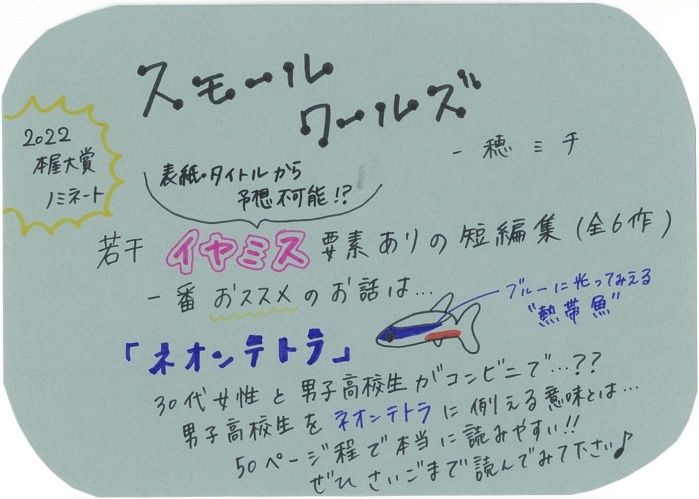 スモール
ワールズ
一穂ミチ
2022
本屋大賞
ノミネート
表紙・タイトルから
予想不可能!?
若干イヤミス要素ありの短編集(全6作)
一番おススメのお話は…
ブルーに光ってみえる
"熱帯魚"
「ネオンテトラ」
30代女性と男子高校生がコンビニで…??
男子高校生をネオンテトラに例える意味とは…
50ページ程で本当に読みやすい!!
ぜひさいごまで読んでみて下さい♪